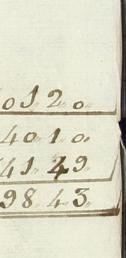 012.0
4010.
4149
9843.